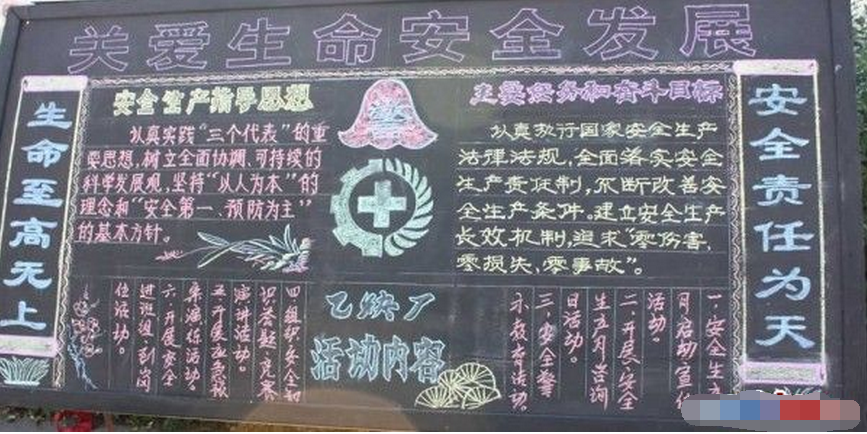 关爱生命安全发展
生命至高无上
安全责任为天
安全生产指导思想
认真实践“三个代表”的重
要思想，树立全面协调、可持续的
科学发展观，坚持“以人为本”的
理念和“安全第一、预防为主”
的基本方针。
警
主要任务和奋斗目标
认真执行国家安全生产
法律法规，全面落实安全
生产责任制，不断改善安
全生产条件。建立安全生产
长效机制，追求“零伤害、
零损失、零事故”。
乙炔厂
活动内容
一、安全生产
月启动宣传
活动。
二、开展安全
生产月咨询
日活动。
三、安全警
示教育活动。
四、组织安全知
识答题、竞赛
演讲活动。
五、开展应急救
演练活动。
六、开展安全
进班组、到岗
位活动。